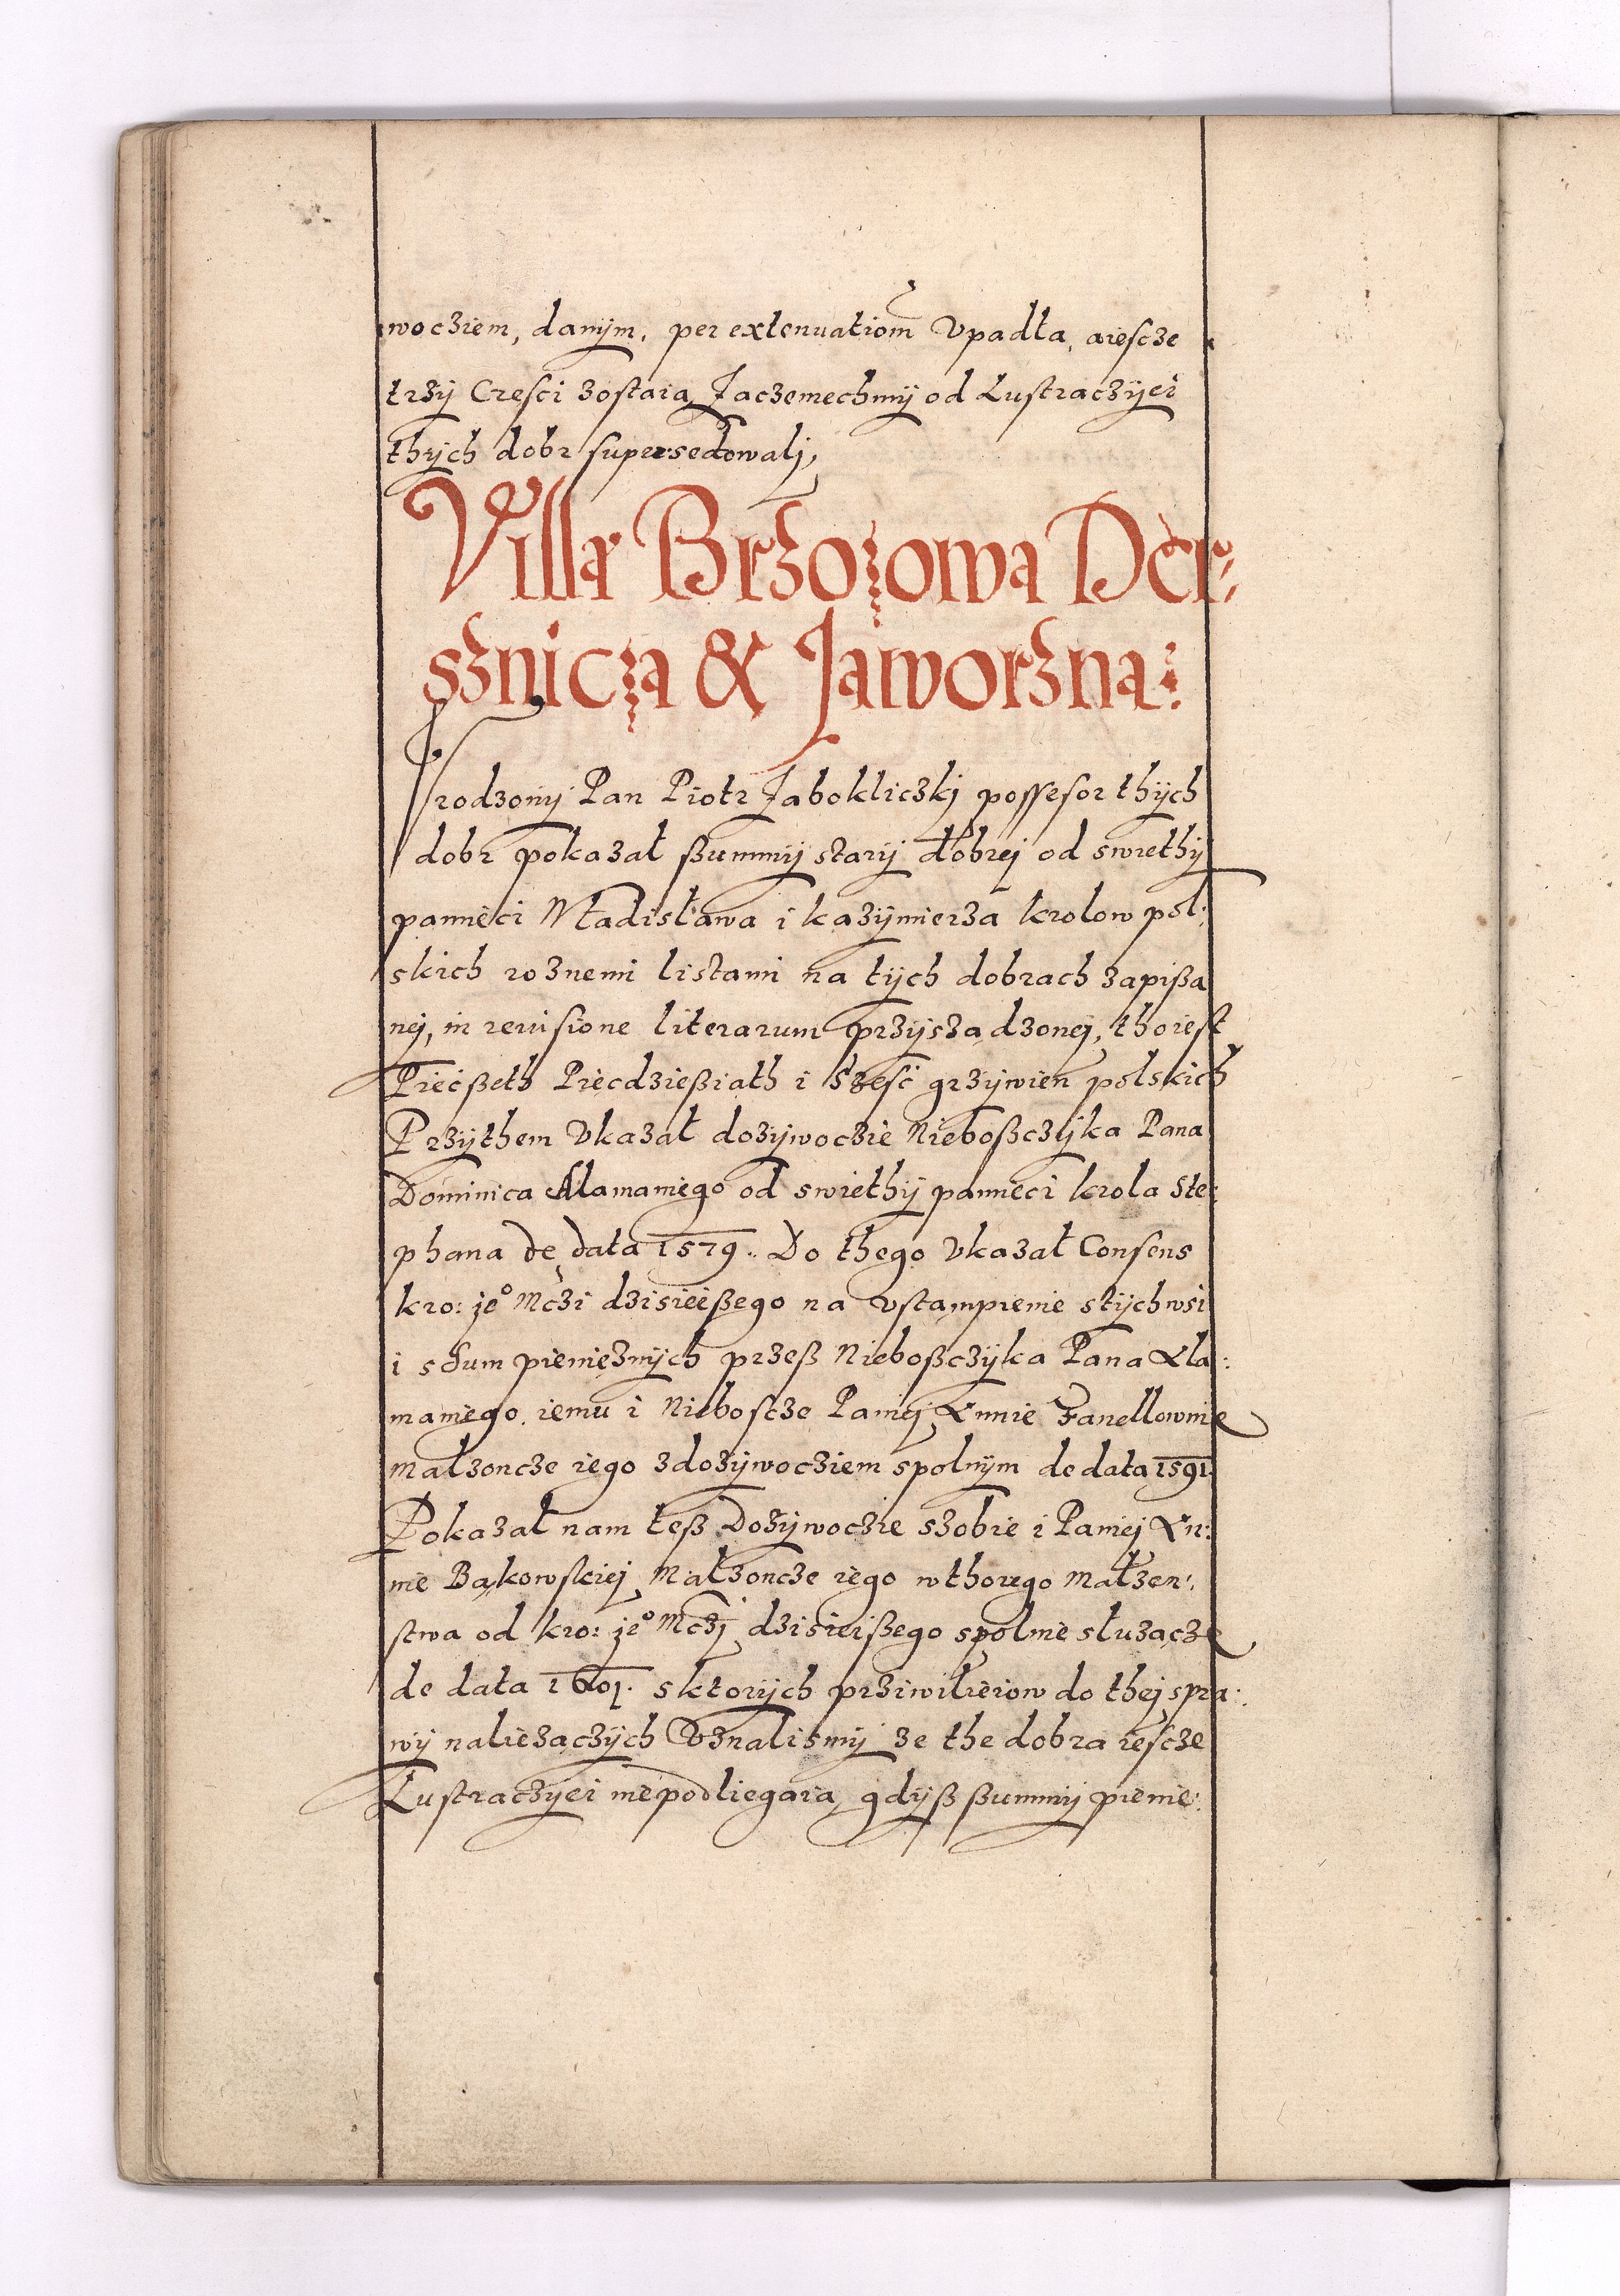 wocziem, danÿm, per extenuationem Vpadła, aiescze
trzÿ Cżesci zostaia, Zaczemechmÿ od Lustraczÿei
thÿch dobr supersedowalj,
Villa Brzozowa Der:
sznicza & Jaworzna:
Vrodzonÿ Pan Piotr Jaboklliczkj possesor thÿch
dobr pokazał ßummÿ starÿ dobrej od swiethÿ
pamięci Władisława i kazÿmierza krolow pol:
skich roznemi listami na tÿch dobrach zapißa
nej, in reuisione literarum przÿsządzonej, thoiest
Piecßeth Pięcdzießiath i Szesc grzÿwien polskich
Przÿthem Vkazał dozÿwoczie Nieboßczÿka Pana
Dominica Alamaniego od swiethÿ pamięci krola Ste:
phana de data 1579. Do thego Vkazał Consens
kro: je° Mczi dzisieißego na vstąmpienie stÿch wsi
i sSum pienięznÿch przeß Nieboßczÿka Pana Ala:
maniego iemu i Niebosczce Paniej Annie Fanellownie
małzoncze iego zdozÿwocziem spolnÿm de data 1591.
Pokazał nam teß Dozÿwoczie szobie i Paniej An:
nie Bąkowskiej Małzoncze iego wthorego Małzen:
stwa od kro: je° Mczj dzisieißego spolnie słuzącze
de data 1601. sktorÿch prziwileiow do thej spra:
wÿ naliezaczÿch Vznalismÿ ze the dobra iescze
Lustraczÿei niepodliegaia, gdÿß ßummÿ pienie: